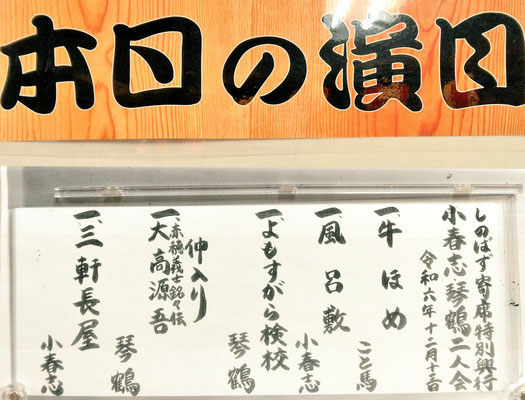 本日の演目
しのばず寄席特別興行
小春志琴鶴二人会
令和六年十二月十三日
一、牛ほめ
こと馬
一、風呂敷
小春志
一、よもすがら検校
琴鶴
仲入り
赤穂義士銘々伝
一、大高源吾
琴鶴
一、三軒長屋
小春志